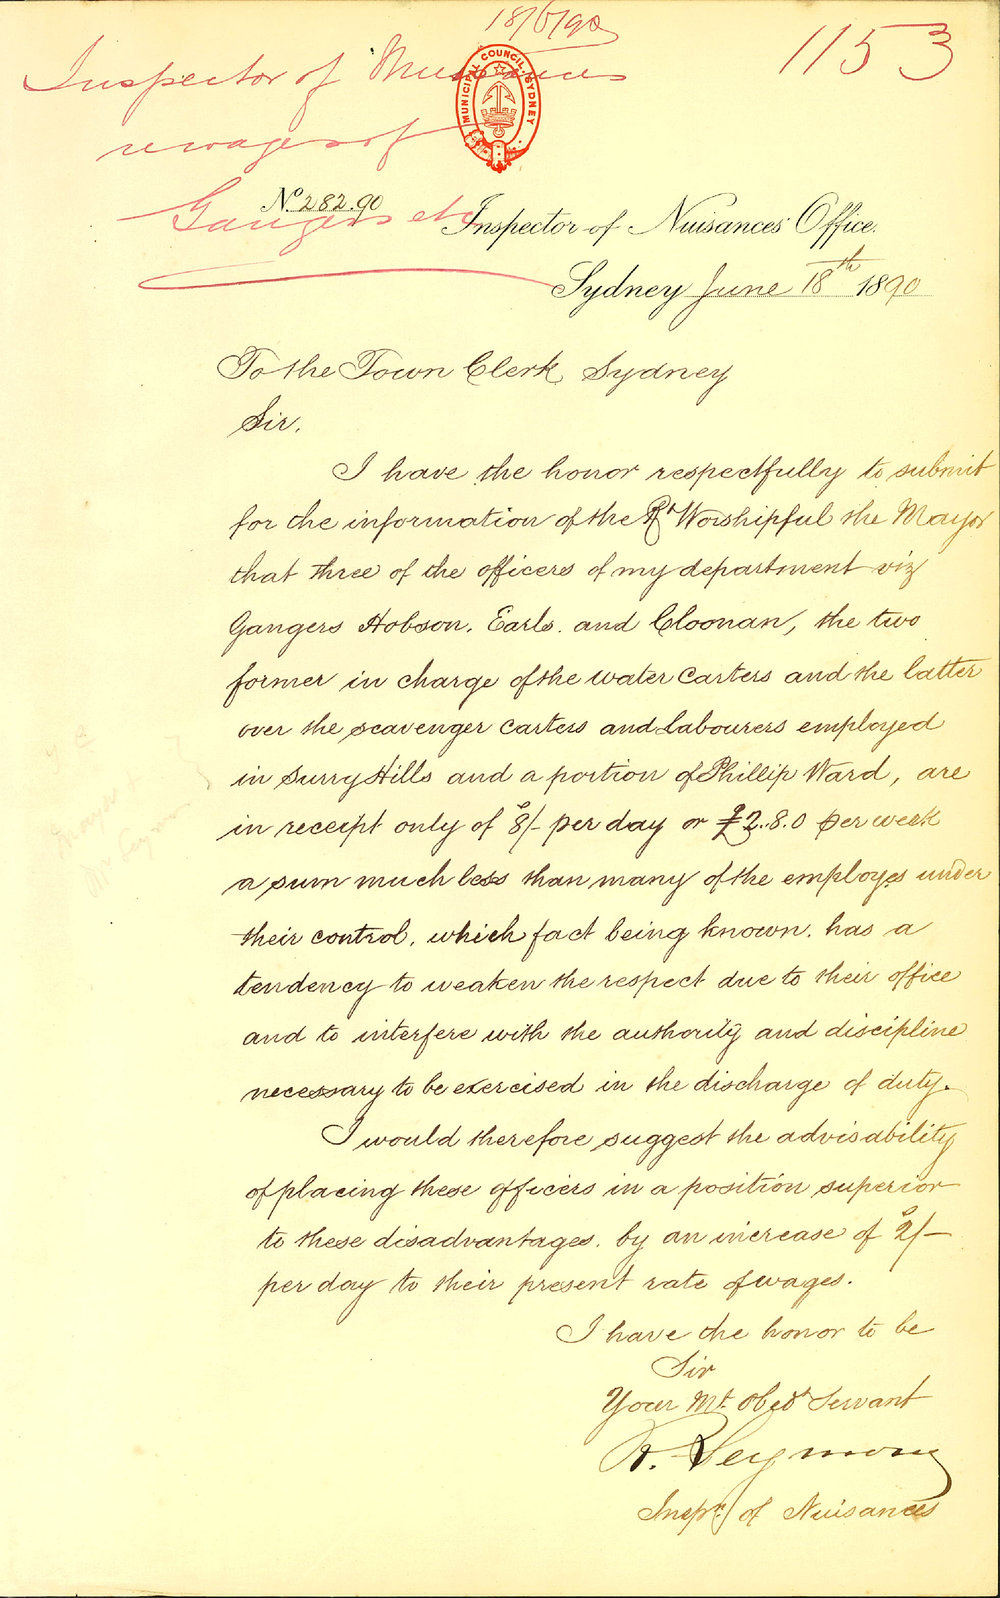 18/6/90
1153
Inspector of Nuisances
re wages of
Gangers etc
MUNICIPAL COUNCIL SYDNEY
No. 282.90
Inspector of Nuisances' Office.
Sydney June 18th 1890
To the Town Clerk, Sydney
Sir,
I have the honor respectfully to submit
for the information of the Rt Worshipful the Mayor
that three of the officers of my department viz
Gangers Hobson, Earls. and Cloonan, the two
former in charge of the water carters and the latter
over the scavenger carters and labourers employed
in Surry Hills and a portion of Phillip Ward, are
in receipt only of 8/- per day or £2..8.0 per week
a sum much less than many of the employes under
their control, which fact being known, has a
tendency to weaken the respect due to their office
and to interfere with the authority and discipline
necessary to be exercised in the discharge of duty.
I would therefore suggest the advisability
of placing these officers in a position superior
to these disadvantages. by an increase of 2/-
per day to their present rate of wages.
I have the honor to be
Sir
Your Mt. Obedt Servant
R. Seymour
Inspr. of Nuisances